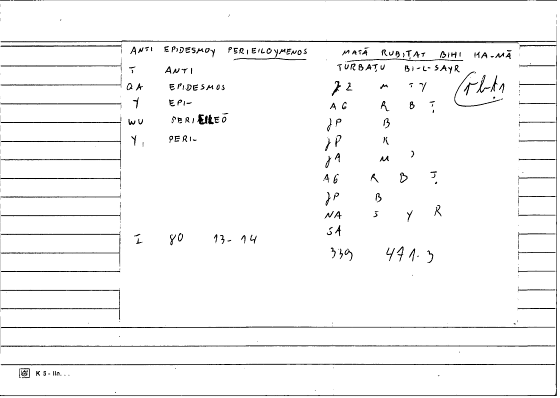 ANTI EPIDESMOY PERIEILOYMENOS
T ANTI
QA EPIDESMOS
Y EPI-
WU PERIEILEŌ
Y, PERI-
I 80 13-14
MATĀ RUBIṬAT BIHI KA-MĀ
TURBAṬU BI-L-SAYR
JZ M TY
AG R B Ṭ
JP B
JP K
JA M )
AG R B Ṭ
JP B
NA S Y R
SA
339 441.3
rbṭ1
K 5 - IIn. . .